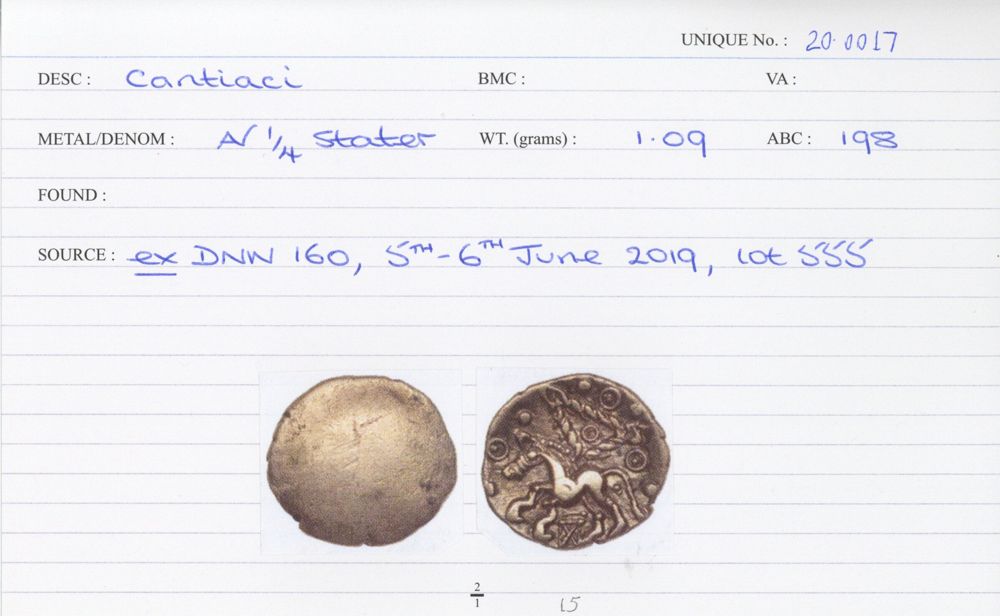 UNIQUE No. : 20.0017
DESC : Cantiaci BMC : VA :
METAL/DENOM : AV 1/4 Stater WT. (grams) : 1.09 ABC : 198
FOUND :
SOURCE : ex DNW 160, 5TH-6TH June 2019, lot 555
2/1 15